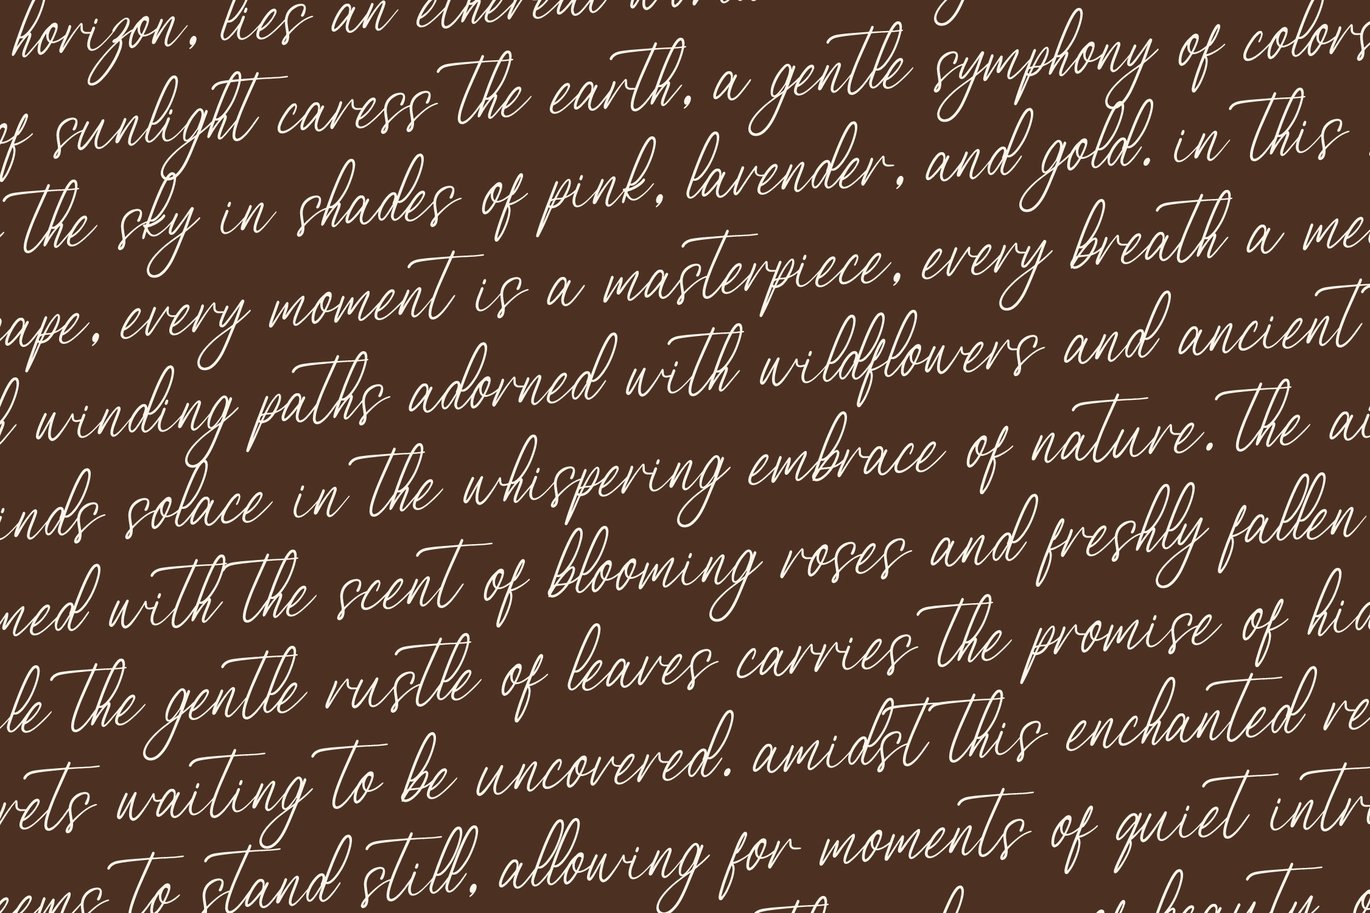 horizon, lies an ethereal
of sunlight caress the earth, a gentle symphony of colors
the sky in shades of pink, lavender, and gold. in this
ape, every moment is a masterpiece, every breath a me
winding paths adorned with wildflowers and ancient
inds solace in the whispering embrace of nature. the ai
ned with the scent of blooming roses and freshly fallen
le the gentle rustle of leaves carries the promise of hid
rets waiting to be uncovered. amidst this enchanted re
eems to stand still, allowing for moments of quiet intr
of beauty